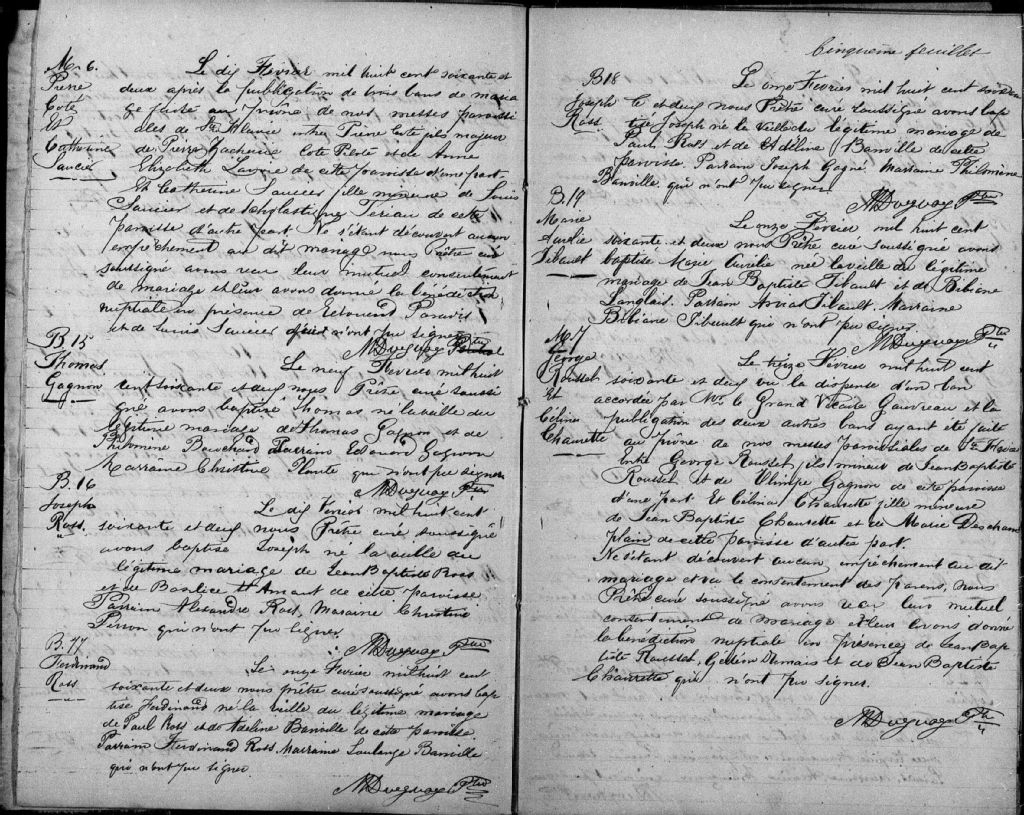 M. 6.
Pierre
Coté
Et
Catherine
Saucier
Le dix Fevrier mil huit cent soixante et
deux après la publication de trois bans de maria
ge faite au prône de nos messes paroissi
ales de Ste Flavie entre Pierre Coté fils majeur
de Pierre Zacherie Coté Pilote et de Anne
Elizabeth Lavoie de cette paroisse d'une part
Et Catherine Saucier fille mineure de Louis
Saucier et de Scholastique de cette
paroisse d'autre part Ne s'étant découvert aucun
empêchement au dit mariage nous Prêtre curé
soussigné avons reçu leur mutuel consentement
de mariage et leur avons donné la bénédiction
nuptiale en présence de Edouard Paradis
et de Louis Saucier qui n'ont pu signer
MDuguay Ptre
B 15
Thomas
Gagnon
Le neuf Fevrier mil huit
cent soixante et deux nous Prêtre curé soussi
gné avons baptisé Thomas né la veille du
légitime mariage de Thomas Gagnon et de
Philomine Bouchard Parrain Edouard Gagnon
Marraine Christine Plante qui n'ont pu signer
MDuguay Ptre
B. 16
Joseph
Ross.
Le dix Fevrier mil huit cent
soixante et deux nous Prêtre curé soussigné
avons baptisé Joseph né la veille du
légitime mariage de Jean Baptiste Ross
et de Basilice St Amant de cette paroisse
Parrain Alexandre Ross, Maraine Christine
Pinon qui n'ont pu signer.
MDuguay Ptre
B. 17
Ferdinand
Ross
Le onze Fevrier mil huit cent
soixante et deux nous prêtre curé soussigné avons bap
tisé Ferdinand né la veille du légitime mariage
de Paul Ross et de Adeline Banville de cette paroisse.
Parrain Ferdinand Ross, Marraine Soulange Banville
qui n'ont pu signer.
MDuguay Ptre
Cinquieme feuillet
B 18
Joseph
Ross
Le onze Fevrier mil huit cent soixan
te et deux nous Prêtre curé soussigné avons bap
tisé Joseph né la veille du légitime mariage de
Paul Ross et de Adéline Banville de cette
paroisse Parrain Joseph Gagné Marraine Philomène
Banville qui n'ont pu signer
MDuguay Ptre
B. 19
Marie
Aurélie
Tibault
Le onze Fevrier mil huit cent
soixante et deux nous Prêtre curé soussigné avons
baptisé Marie Aurélie née la veille du légitime
mariage de Jean Baptiste Tibault et de Bibiane
Langlais. Parrain Tibault Marraine
Bibiane Tibault qui n'ont pu signer
MDuguay Ptre
M. 7
George
Roussel
Et
Célina
Chaurette
Le treize Fevrier mil huit cent
soixante et deux vu la dispense d'un ban
accordée par Mr. le Grand Vicaire Gauvreau et la
publication des deux autres bans ayant été faite
au prône de nos messes paroissiales de Ste Flavie
Entre George Roussel, fils mineur de Jean Baptiste
Roussel et de Olimpe Gagnon de cette paroisse
d'une part Et Célina Chaurette fille mineure
de Jean Baptiste Chaurette et de Marie Deschamp
plain de cette paroisse d'autre part.
Ne s'étant découvert aucun empêchement au dit
mariage et vu le consentement des parens, nous
Prêtre curé soussigné avons reçu leur mutuel
consentement de mariage et leur avons donné
la bénédiction nuptiale en présence de Jean Bap
tiste Roussel, Gédéon Damais et de Jean Baptiste
Chaurette qui n'ont pu signer.
MDuguay Ptre